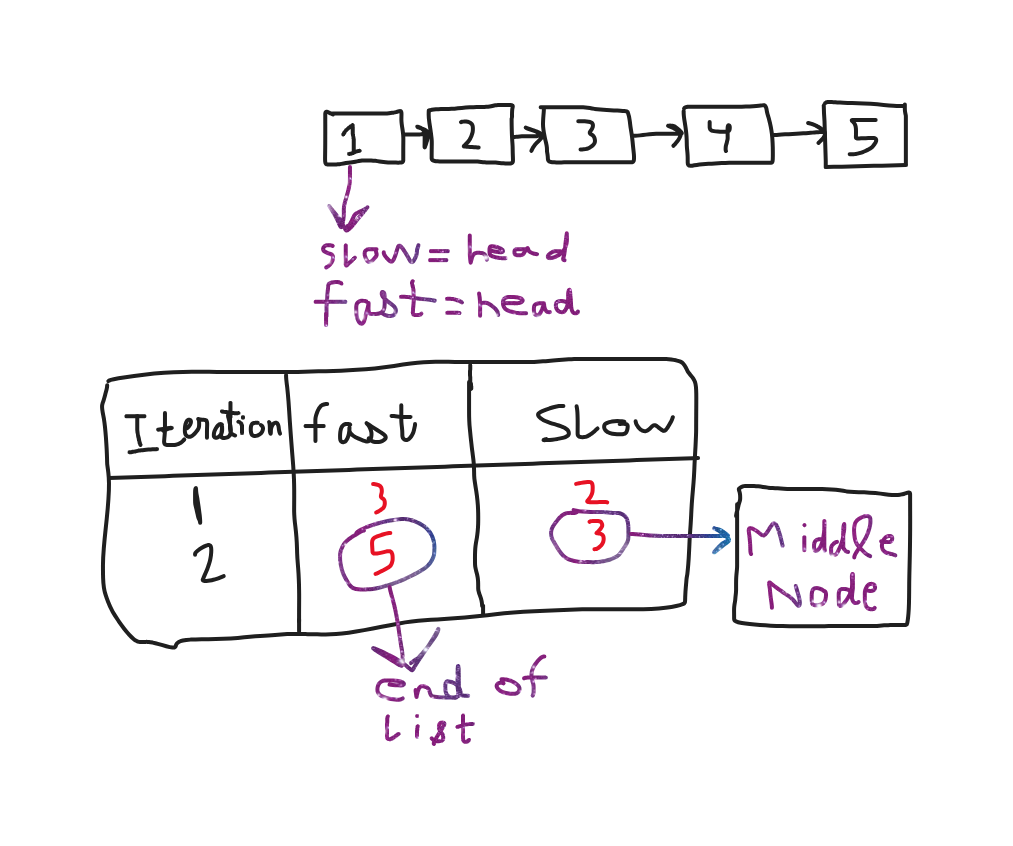 1 2 3 4 5
slow = head
fast = head
Iteration fast Slow
1 3 2
2 5 3
Middle
Node
end of
list